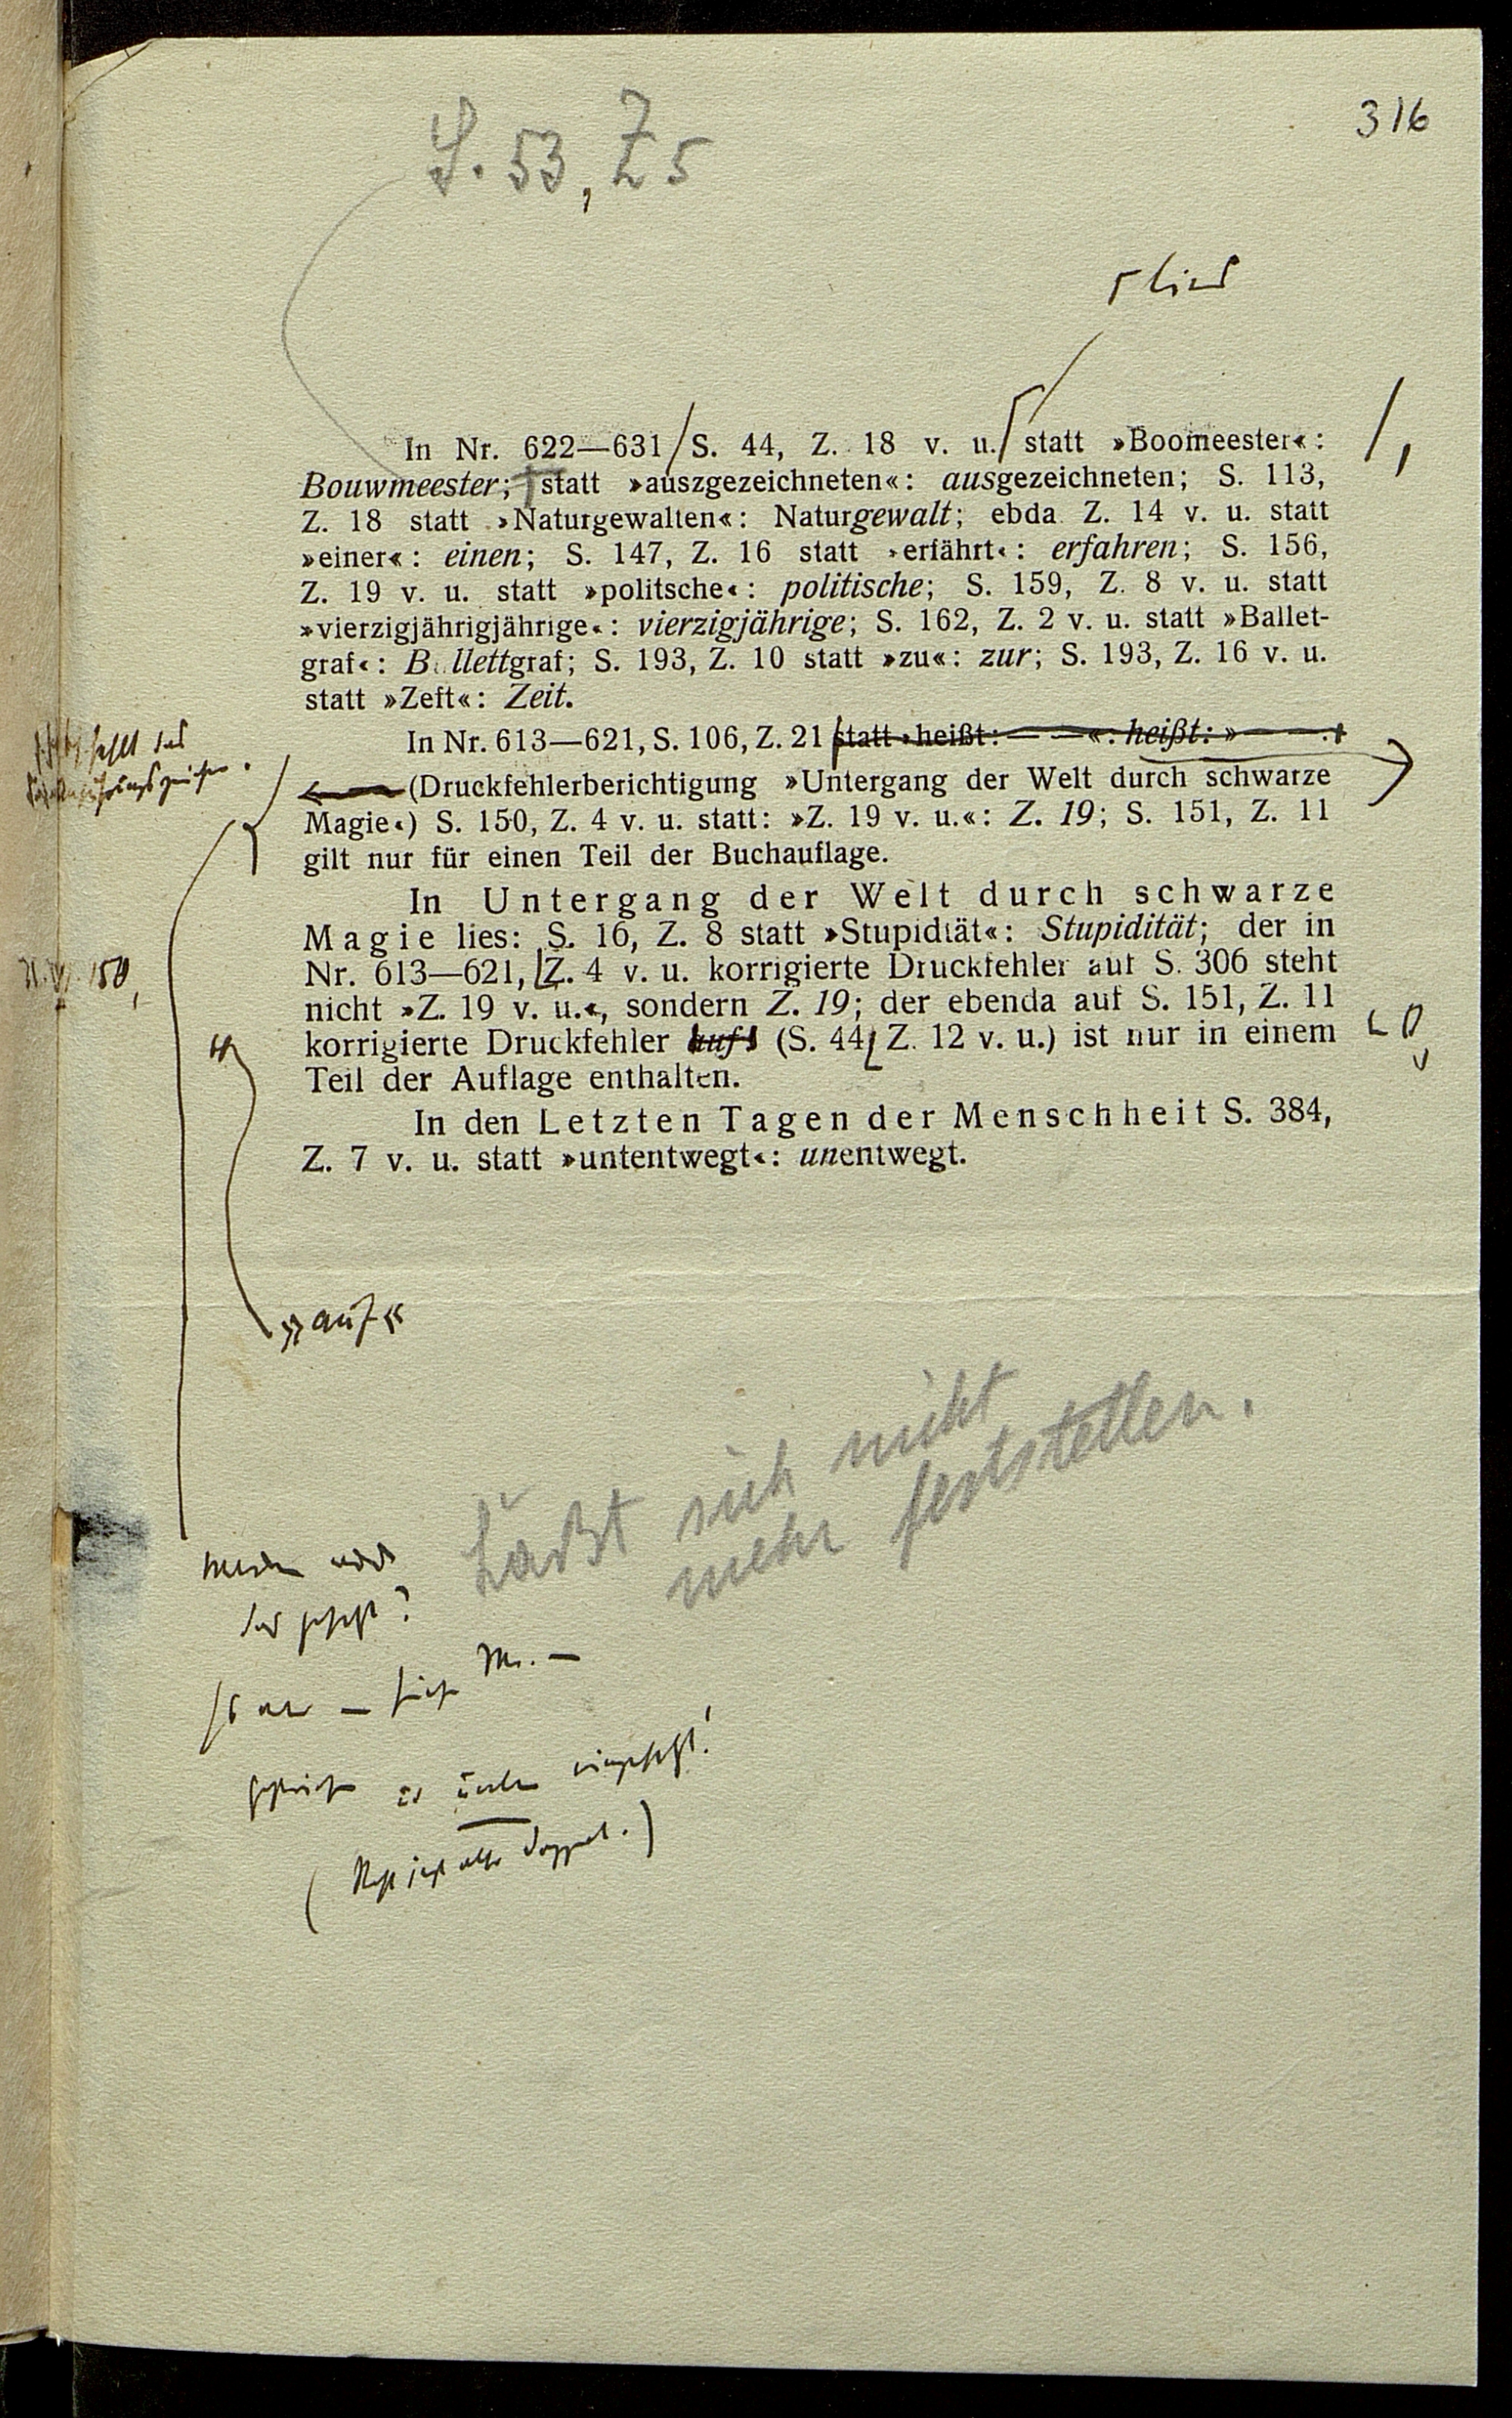 316
S. 53, Z 5
lies
In Nr. 622—631 S. 44, Z. 18 v. u. statt »Boomeester«:
Bouwmeester; statt »auszgezeichneten«: ausgezeichneten; S. 113,
Z. 18 statt »Naturgewalten«: Naturgewalt; ebda. Z. 14 v. u. statt
»einer«: einen; S. 147, Z. 16 statt »erfährt«: erfahren; S. 156,
Z. 19 v. u. statt »politsche«: politische; S. 159, Z. 8 v. u. statt
»vierzigjährigjährige«: vierzigjährige; S. 162, Z. 2 v. u. statt »Ballet-
graf«: Ballettgraf; S. 193, Z. 10 statt »zu«: zur; S. 193, Z. 16 v. u.
statt »Zeft«: Zeit.
In Nr. 613—621, S. 106, Z. 21 statt »heißt: — —«: heißt: »— —.
fehlt das
(Druckfehlerberichtigung »Untergang der Welt durch schwarze
Magie«) S. 150, Z. 4 v. u. statt: »Z. 19 v. u.«: Z. 19; S. 151, Z. 11
gilt nur für einen Teil der Buchauflage.
In Untergang der Welt durch schwarze
Magie lies: S. 16, Z. 8 statt »Stupidtät«: Stupidität; der in
Nr. 613—621, Z. 4 v. u. korrigierte Druckfehler auf S. 306 steht
150,
nicht »Z. 19 v. u.«, sondern Z. 19; der ebenda auf S. 151, Z. 11
korrigierte Druckfehler auf (S. 44, Z. 12 v. u.) ist nur in einem
Teil der Auflage enthalten.
In den Letzten Tagen der Menschheit S. 384,
Z. 7 v. u. statt »untentwegt«: unentwegt.
»auf«
Läßt sich nicht
mehr feststellen.